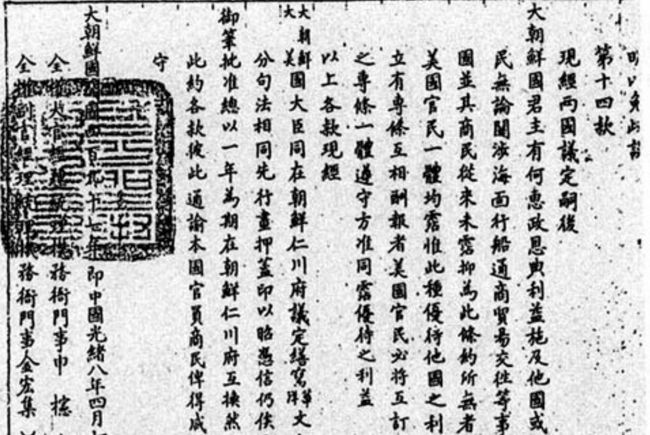 第十四款
現經兩國議定嗣後
大朝鮮國君主有何惠政恩典利益施及他國或
民無論關涉海面行船通商貿易交往等事
國並其商民從來未霑抑為此條約所無者
美國官民一體均霑惟此種優待他國之利
立有專條互相酬報者美國官民必將互訂
之專條一體遵守方准同霑優待之利益
以上各款現經
大朝鮮
大美國大臣同在朝鮮仁川府議定繕寫華洋文
分句法相同先行畫押蓋印以昭憑信仍俟
御筆批准總以一年為期在朝鮮仁川府互換然
此約各款彼此通諭本國官員商民俾得咸
守
大朝鮮國開國四百九十一年即中國光緒八年四月
全權大官經理統理機務衙門事申櫶
全權副官經理統理機務衙門事金宏集